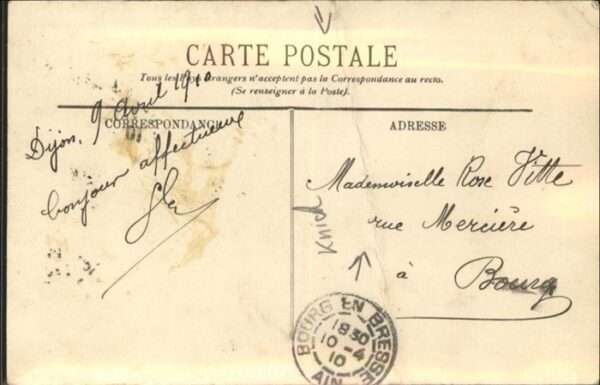 CARTE POSTALE
Tous les Pays étrangers n'acceptent pas la Correspondance au recto.
(Se renseigner à la Poste).
CORRESPONDANCE
Dijon, 9 avril 1910
bonjour affectueux
ADRESSE
Mademoiselle Rose Vitte
rue Mercière
à Bourg
BOURG EN BRESSE
18 30
10 - 4
10
AIN